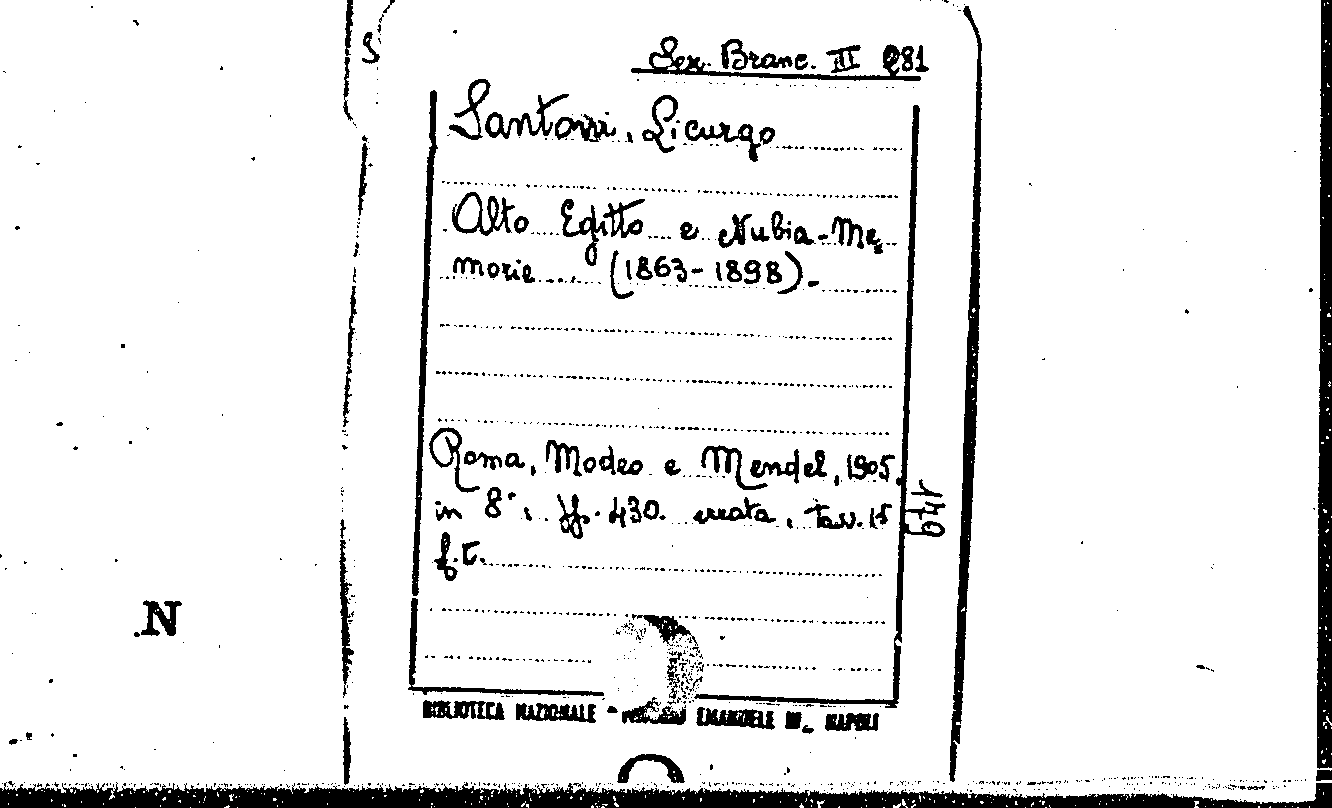 S
Sez. Branc. III Q81
Santoni, Licurgo
Alto Egitto e Nubia - Me=
morie... (1863-1898).-
Roma, Modeo e Mendel, 1905.
in 8°, pp. 430. errata, tav. 15
f.t.
N
BIBLIOTECA NAZIONALE - EMANUELE III - NAPOLI